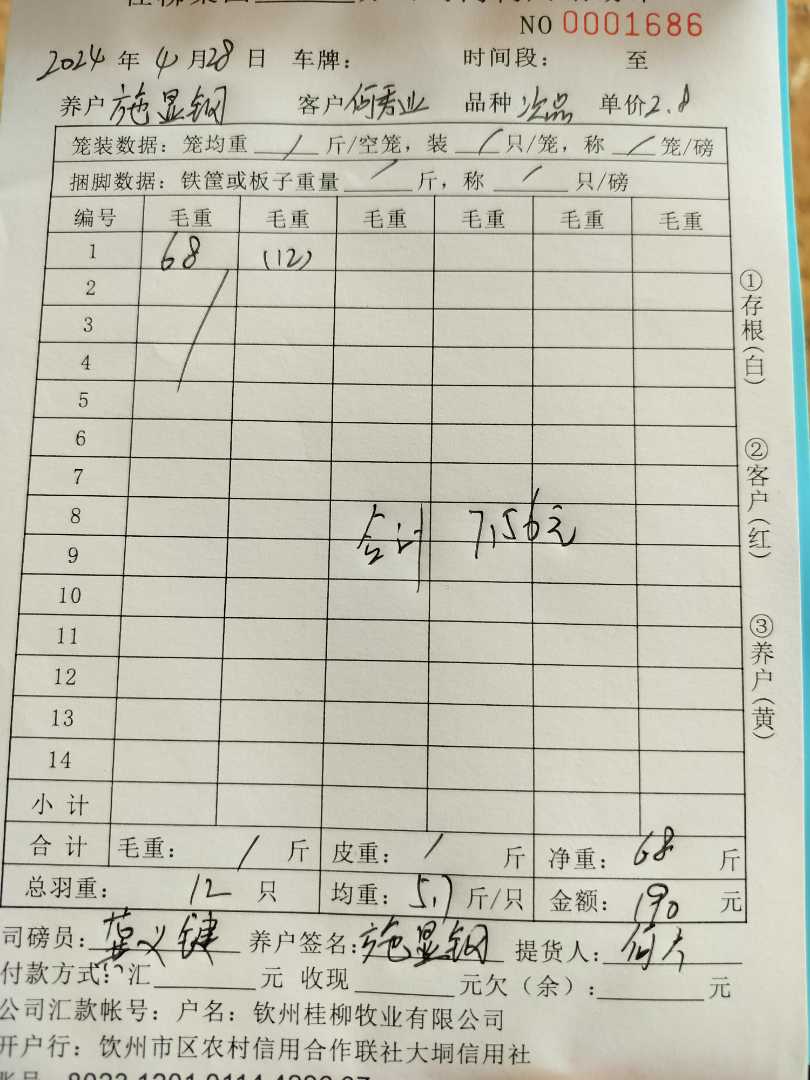 NO 0001686
2024 年 4 月 28 日 车牌： 时间段： 至
养户 施显钢 客户 何秀业 品种 次品 单价 2.8
笼装数据：笼均重 / 斤/空笼，装 / 只/笼，称 / 笼/磅
捆脚数据：铁筐或板子重量 / 斤，称 / 只/磅
编号 毛重 毛重 毛重 毛重 毛重 毛重
1 68 (12)
2
3
4
5
6
7
8
合计 7,56元
9
10
11
12
13
14
小 计
合 计 毛重： / 斤 皮重： / 斤 净重： 68 斤
总羽重： 12 只 均重： 5.7 斤/只 金额： 190 元
司磅员： 义键 养户签名： 施显钢 提货人： 何
付款方式：汇 元 收现 元欠（余）： 元
公司汇款帐号：户名：钦州桂柳牧业有限公司
开户行：饮州市区农村信用合作联社大垌信用社
①存根(白)
②客户(红)
③养户(黄)